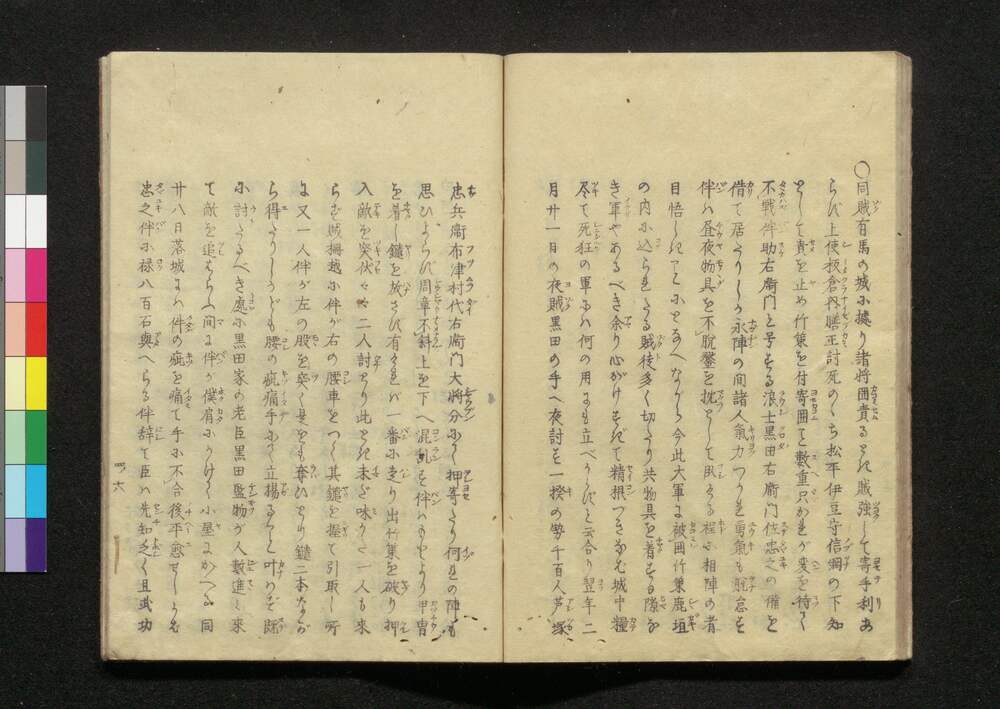 ○同賊有馬の城に據り諸將囲責るとき賊強して寄手利あ
らず上使板倉内膳正討死のゝち松平伊豆守信綱の下知
として責を止め竹策を付寄囲て數重只かれが变を待て
不戰伴助右衞門と号する浪士黒田右衞門佐忠之の備を
借て居たりしか永陣の間諸人氣力つかれ勇氣も脱怠を
伴ハ昼夜物具を不脱鑿を枕として臥ける程に相陣の者
目悟しきことにとなへながら今此大軍に被囲竹策鹿垣
の内に込られたる賊徒多く切たり共物具を着する隙な
き軍やあるべき余り心がけすぎて精根つきなむ城中糧
尽て死狂の軍にハ何の用にも立べからずと云合り翌年二
月廿一日の夜賊黒田の手へ夜討す一揆の勢千百人芦塚
忠兵衞布津村代右衞門大將分にて押寄たり何れの陣も
思ひよらず周章不斜上を下へ混乱を伴ハもとより甲冑
を着し鑓を放さず有けれバ一番に走り出竹策を破り押
入敵を突伏々々二人討とり此とき未だ味かた一人も来
らず賊柵越に伴が右の腰車をつく其鑓を握て引取し所
に又一人伴が左の股を突く是をも奪ひとり鑓二本なが
ら得たりしかども腰の疵痛手にて立揚ること叶わず既
に討たるべき處に黒田家の老臣黒田監物が人數進ミ来
て敵を追はらふ間に伴が僕肩にかけて小屋にかへる同
廿八日落城にハ件の疵を痛て手に不合後平愈せしかば
忠之伴に禄八百石與へらる伴辞て臣ハ先知乏く且武功
四ノ六